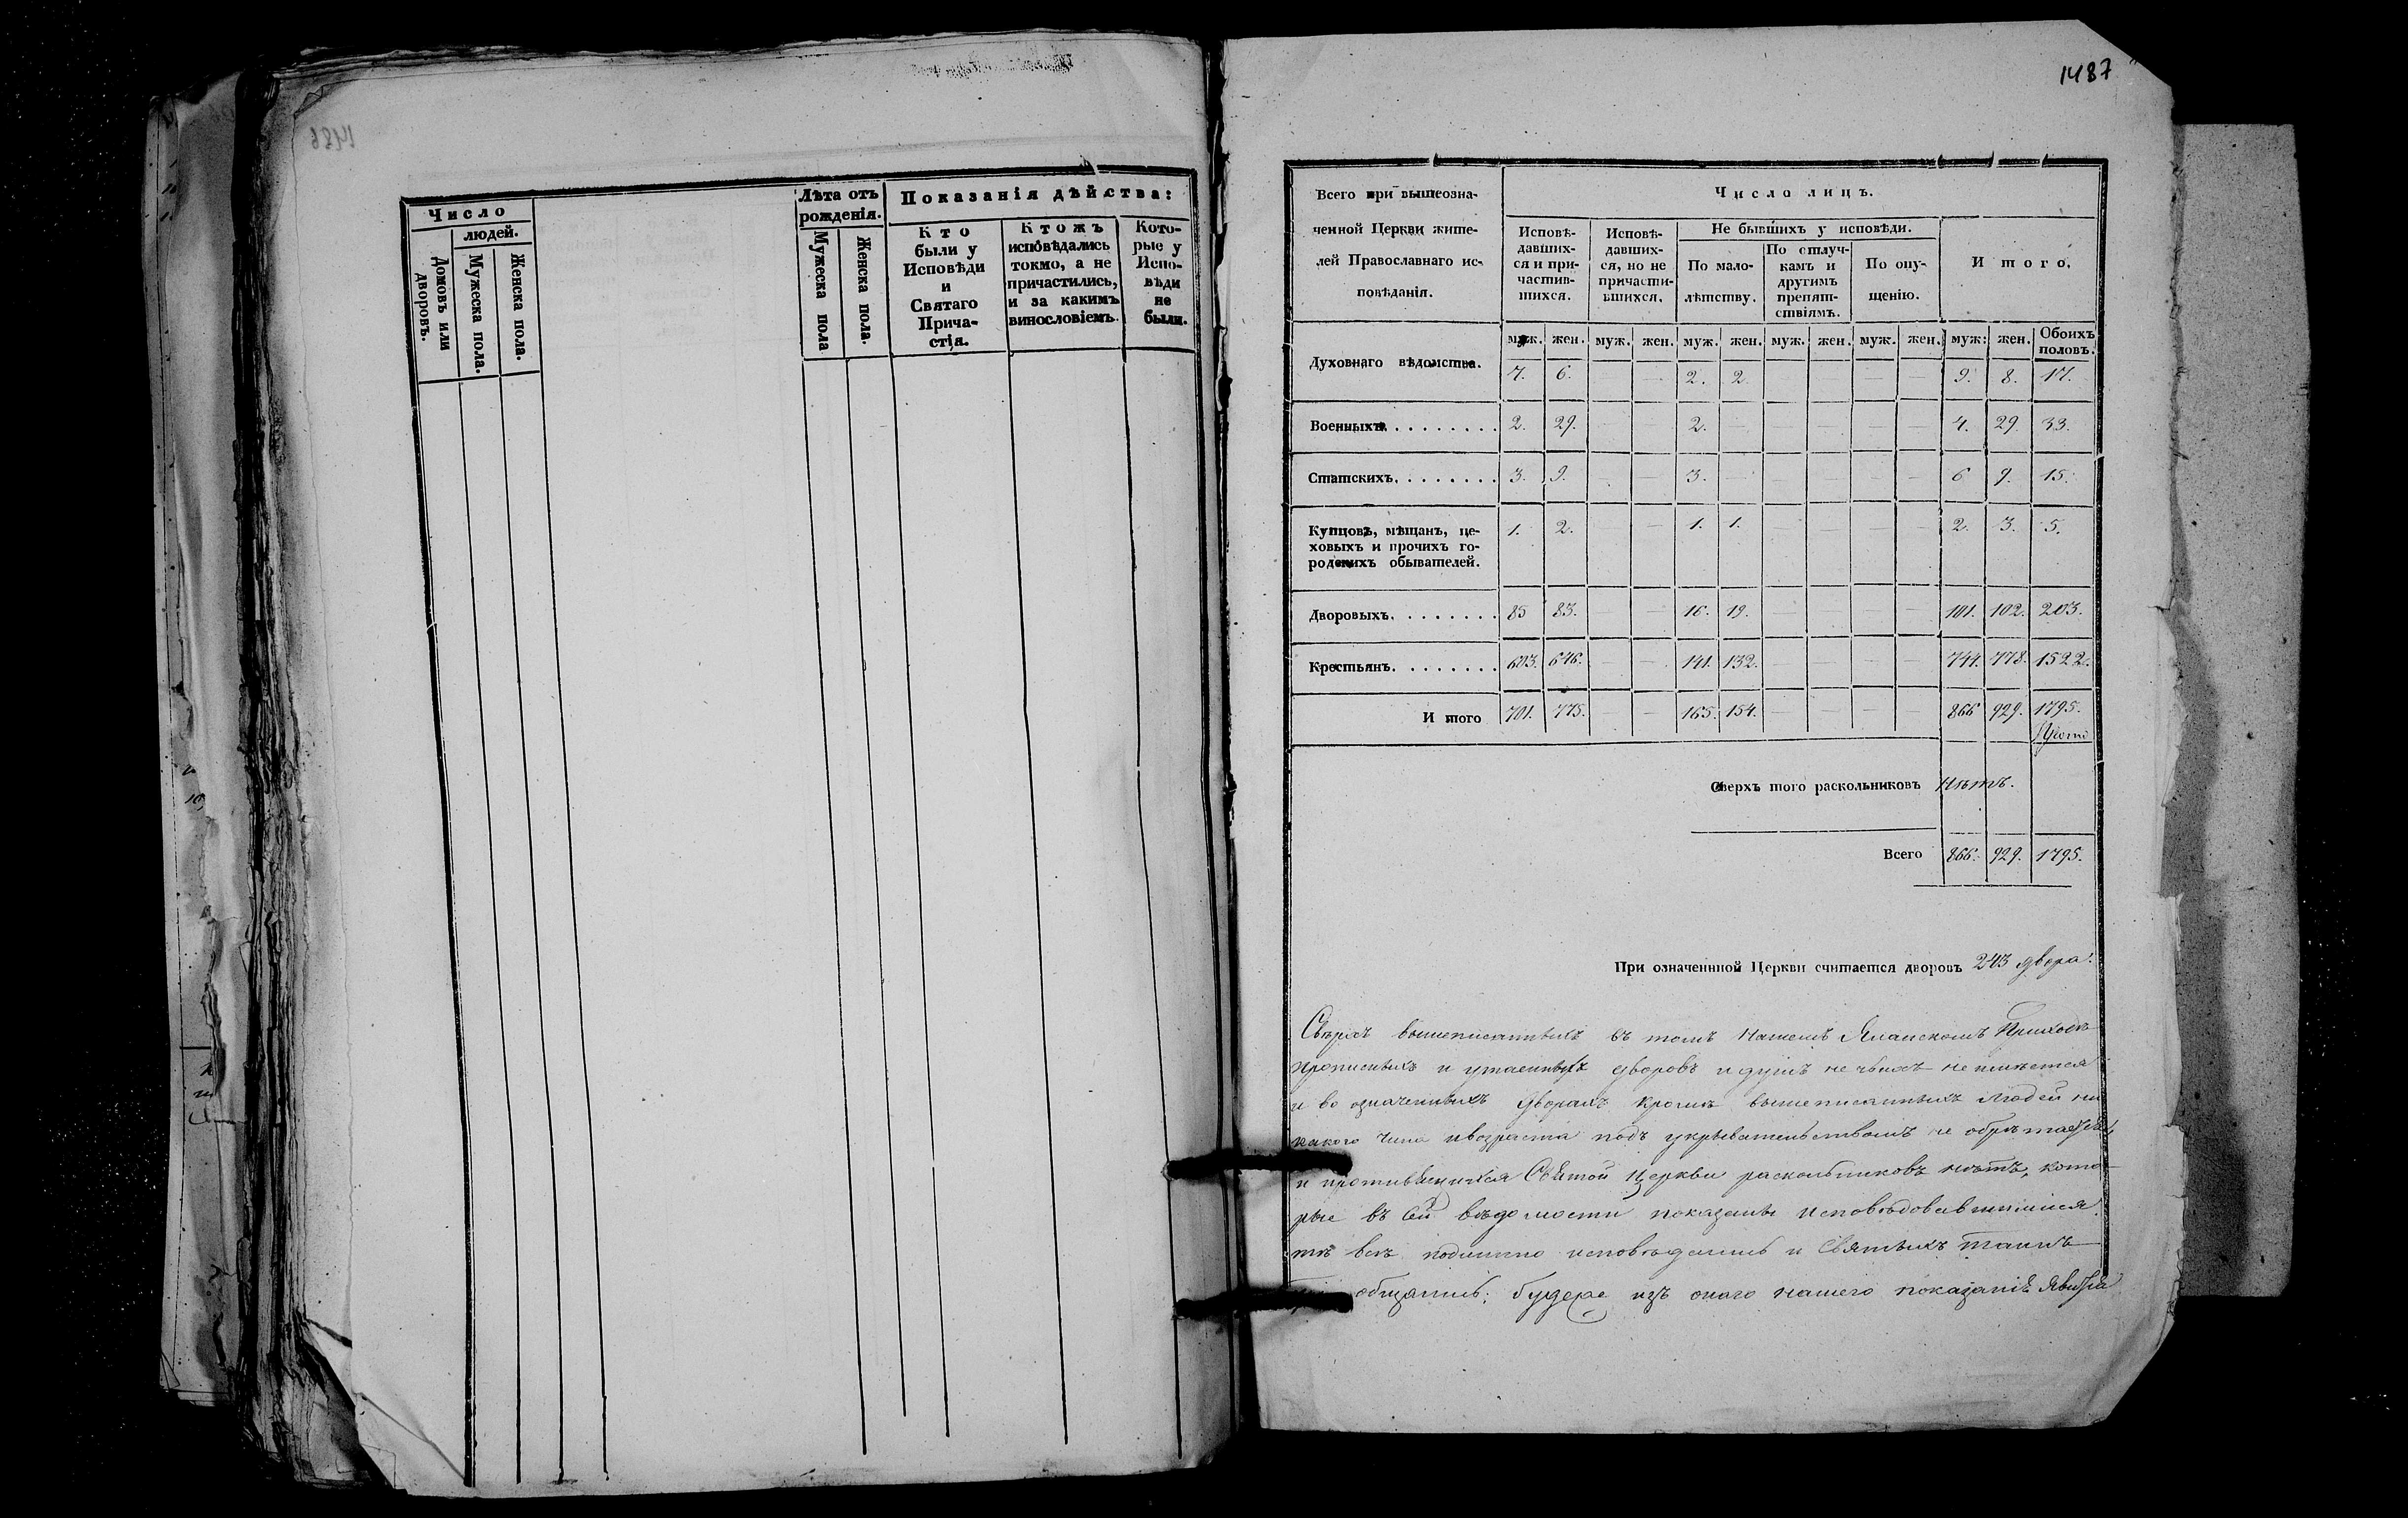 1486
Число
людей.
Домовъ или дворовъ.
Мужеска пола.
Женска пола.
Лѣта отъ рожденія.
Мужеска пола
Женска пола.
Показанія дѣйства:
Кто были у Исповѣди и Святаго Причастія.
Ктожъ исповѣдались токмо, а не причастились, и за какимъ винословіемъ.
Которые у Исповѣди не были.
1487
Всего при вышеозна-
ченной Церкви жите-
лей Православнаго ис-
повѣданія.
Число лицъ.
Исповѣ-
давших-
ся и при-
частив-
шихся.
Исповѣ-
давших-
ся, но не
причасти-
вшихся.
Не бывшихъ у исповѣди.
По мало-
лѣтству.
По отлуч-
камъ и
другимъ
препят-
ствіямъ.
По опу-
щенію.
Итого.
муж. жен. муж. жен. муж. жен. муж. жен. муж. жен. муж: жен. Обоихъ половъ.
Духовнаго вѣдомства. 7. 6. — — 2. 2. — — — — 9. 8. 17.
Военныхъ. . . . . . . . 2. 29. — — 2. — — — — — 4. 29. 33.
Статскихъ. . . . . . . . 3. 9. — — 3. — — — — — 6 9. 15.
Купцовъ, мѣщанъ, це-
ховыхъ и прочихъ го-
родскихъ обывателей. 1. 2. — 1. 1. — — 2. 3. 5.
Дворовыхъ. . . . . . . . 85 83. — — 16. 19. — — — — 101. 102. 203.
Крестьянъ. . . . . . . . 603. 646. — — 141. 132. — — — — 744. 778. 1522.
И того 701. 775. — — 165. 154. — — — — 866 929. 1795.
Сверхъ того раскольниковъ Нѣтъ.
Всего 866. 929. 1795.
При означеннной Церкви считается дворовъ 243 двора.
Сверхъ вышеписанныхъ въ томъ нашемъ Приходѣ
прописныхъ и утаенныхъ дворовъ и душъ не чьихъ не имѣется
и во означенныхъ дворахъ кромѣ вышеписанныхъ людей ни
какого чина и возраста подъ укрывательствомъ не обрѣтается,
и противящихся Святой Церкви раскольниковъ нѣтъ, кото-
рые въ сей вѣдомости показаны исповѣдовавшимися
тѣ всѣ подлинно исповѣдались и Святыхъ Таинъ
общались; будеже изъ онаго нашего показанія явится